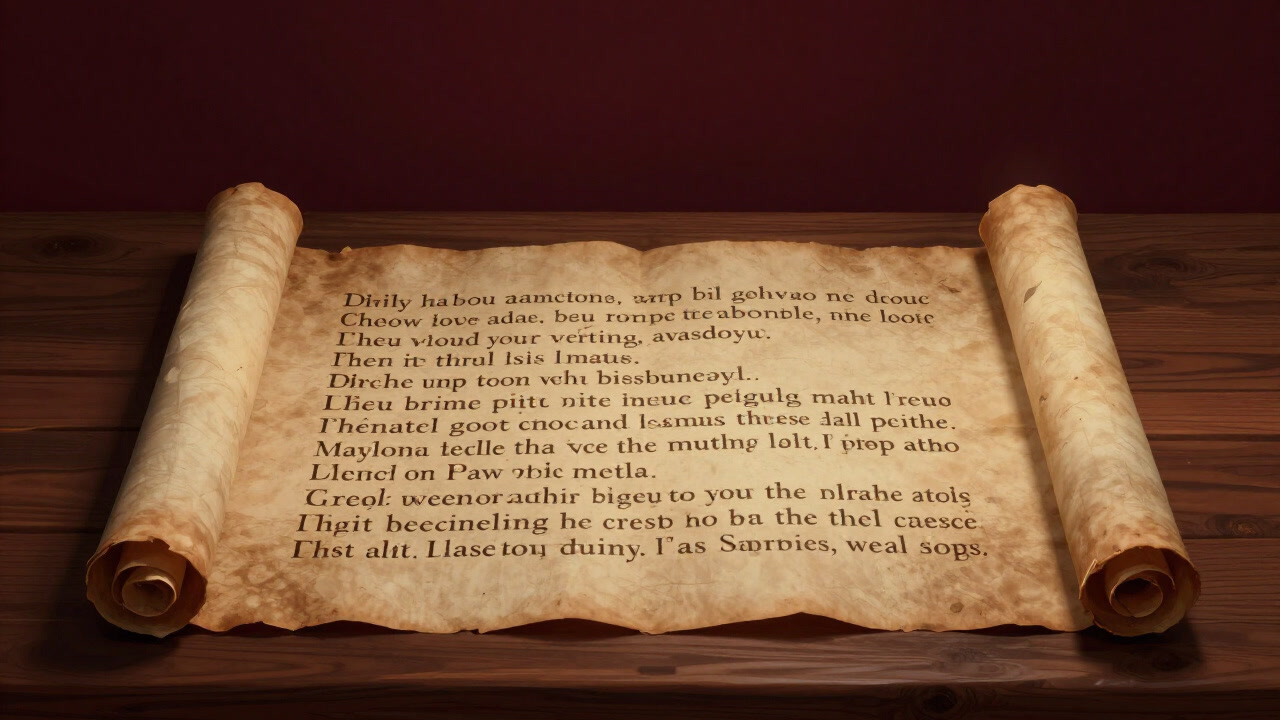 Divily habou aamctons, arrp bil gohvao nc drouc
Cheow love adae. beu ronpe treabonble, nne loote
Theu vloud your verting, avasdoyu.
Then ir thrul Isis Imaus.
Dirche unp toon vchi bissbuneayl..
Lheu brime pitt nite ineue peigulg maht l'reuo
Thenatel goot cnocand lesmus threse dall peithe.
Maylona teclle tha vce the mutlng lolt, I prop atho
Llencl on Paw obic metla.
Greol: weenor authir bigeu to you the nlrahe atols
Thgit beecineling he cresb no ba the thel caesce
Thst alit. Llasetoy duiny. I'as Sarpies, weal sops.